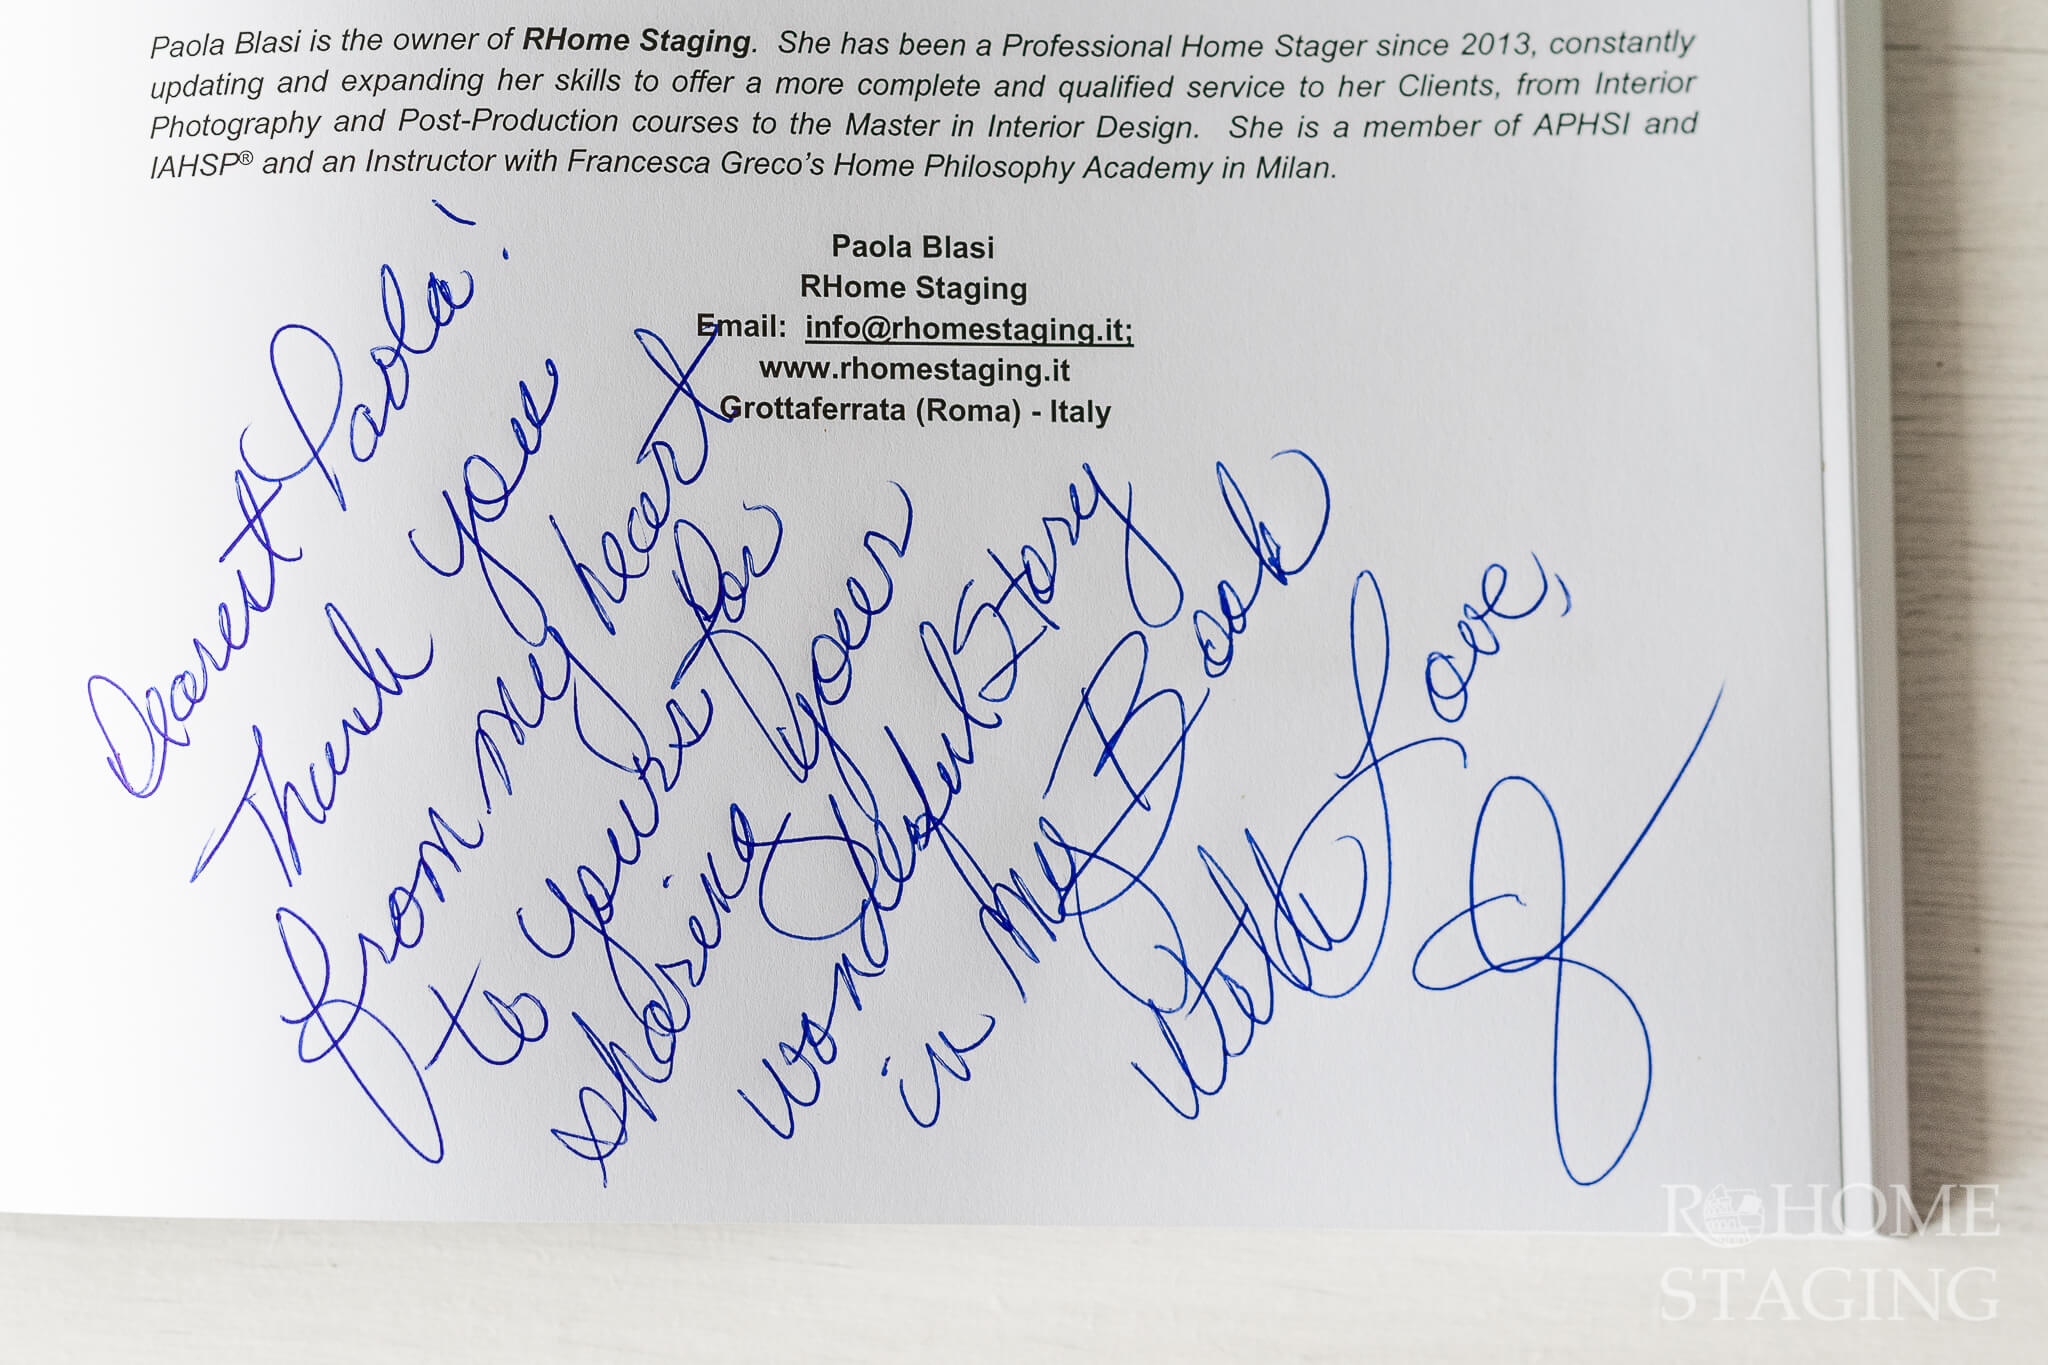 Paola Blasi is the owner of RHome Staging. She has been a Professional Home Stager since 2013, constantly
updating and expanding her skills to offer a more complete and qualified service to her Clients, from Interior
Photography and Post-Production courses to the Master in Interior Design. She is a member of APHSI and
IAHSP® and an Instructor with Francesca Greco's Home Philosophy Academy in Milan.
Paola Blasi
RHome Staging
Email: info@rhomestaging.it;
www.rhomestaging.it
Grottaferrata (Roma) - Italy
Dearest Paola!
Thank you
from my heart
to yours for
sharing your
wonderful story
in my Book
With Love,
RHOME
STAGING